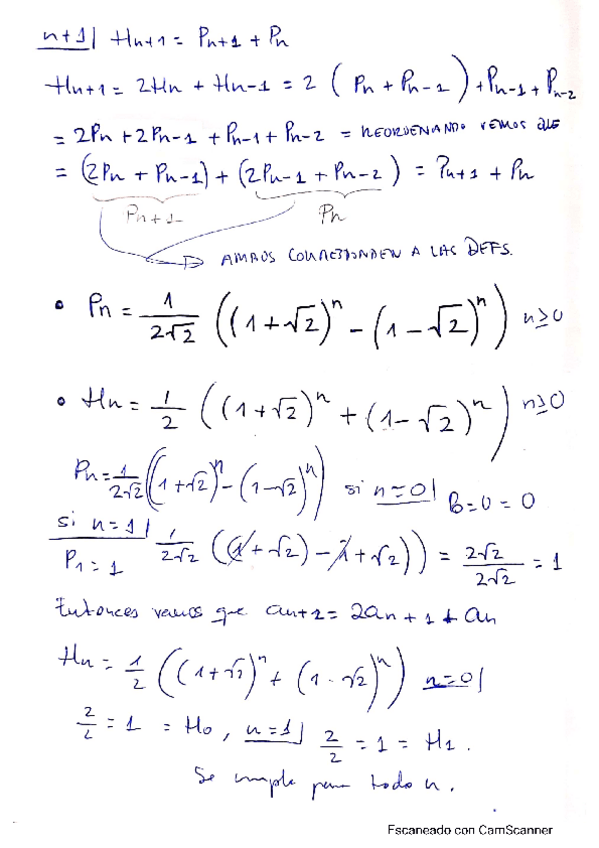 n+1| Hn+1 = Pn+1 + Pn
Hn+1 = 2Hn + Hn-1 = 2 (Pn + Pn-1) + Pn-1 + Pn-2
= 2Pn + 2Pn-1 + Pn-1 + Pn-2 = REORDENANDO VEMOS QUE
= (2Pn + Pn-1) + (2Pn-1 + Pn-2) = Pn+1 + Pn
Pn+1 Pn
AMBOS CORRESPONDEN A LAS DEFS.
• Pn = 1/2√2 ((1+√2)^n - (1-√2)^n) n≥0
• Hn = 1/2 ((1+√2)^n + (1-√2)^n) n≥0
Pn = 1/2√2 ((1+√2)^n - (1-√2)^n) si n=0| P0=0=0
si n=1|
P1=1 1/2√2 ((1+√2) - 1+√2)) = 2√2/2√2 = 1
Entonces vemos que an+2 = 2an+1 + an
Hn = 1/2 ((1+√2)^n + (1-√2)^n) n=0|
2/2 = 1 = H0, n=1| 2/2 = 1 = H1.
Se cumple para todo n.
Escaneado con CamScanner